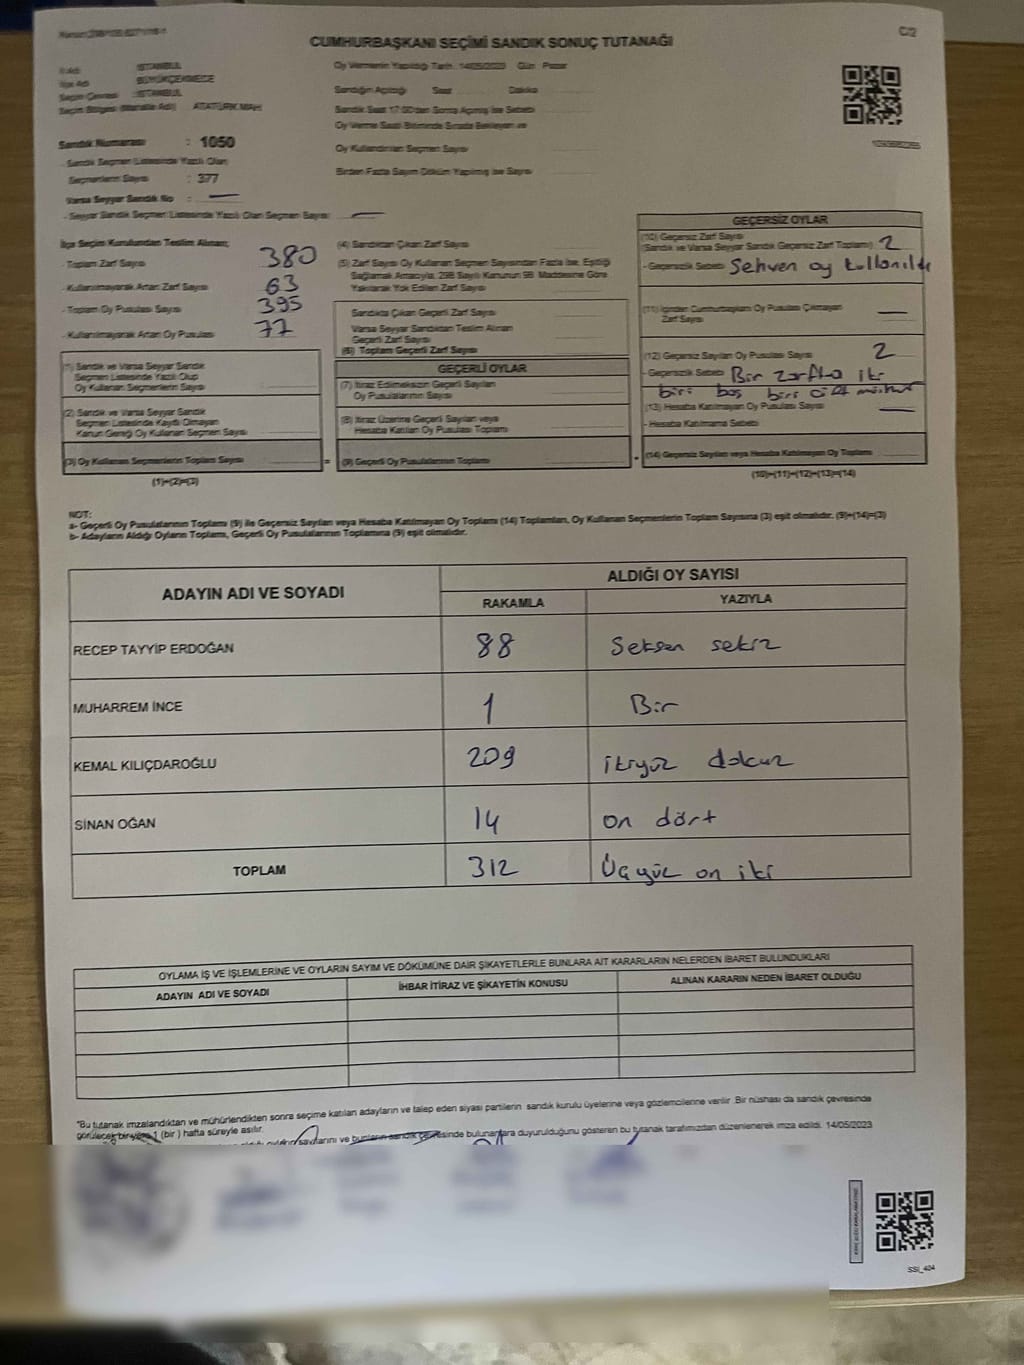 C/2
CUMHURBAŞKANI SEÇİMİ SANDIK SONUÇ TUTANAĞI
İli Adı : İSTANBUL
İlçe Adı : BÜYÜKÇEKMECE
Seçim Çevresi : İSTANBUL
Seçim Bölgesi (Mahalle Adı) : ATATÜRK MAH.
Sandık Numarası : 1050
- Sandık Seçmen Listesinde Yazılı Olan
Seçmenlerin Sayısı : 377
Varsa Seyyar Sandık No :
- Seyyar Sandık Seçmen Listesinde Yazılı Olan Seçmen Sayısı:
Oy Vermenin Yapıldığı Tarih : 14/05/2023 Gün : Pazar
Sandığın Açıldığı Saat Dakika
Sandık Saat 17:00'den Sonra Açılmış ise Sebebi
Oy Verme Saati Bitiminde Sırada Bekleyen ve
Oy Kullandırılan Seçmen Sayısı
Birden Fazla Sayım Döküm Yapılmış ise Sayısı
İlçe Seçim Kurulundan Teslim Alınan;
- Toplam Zarf Sayısı 380
- Kullanılmayarak Artan Zarf Sayısı 63
- Toplam Oy Pusulası Sayısı 395
- Kullanılmayarak Artan Oy Pusulası 77
(1) Sandık ve Varsa Seyyar Sandık
Seçmen Listesinde Yazılı Olup
Oy Kullanan Seçmenlerin Sayısı
(2) Sandık ve Varsa Seyyar Sandık
Seçmen Listesinde Kaydı Olmayan
Kanun Gereği Oy Kullanan Seçmen Sayısı
(3) Oy Kullanan Seçmenlerin Toplam Sayısı
(1)+(2)=(3)
(4) Sandıktan Çıkan Zarf Sayısı
(5) Zarf Sayısı Oy Kullanan Seçmen Sayısından Fazla ise, Eşitliği
Sağlamak Amacıyla, 298 Sayılı Kanunun 98. Maddesine Göre
Yakılarak Yok Edilen Zarf Sayısı
Sandıkta Çıkan Geçerli Zarf Sayısı
Varsa Seyyar Sandıktan Teslim Alınan
Geçerli Zarf Sayısı
(6) Toplam Geçerli Zarf Sayısı
GEÇERLİ OYLAR
(7) İtiraz Edilmeksizin Geçerli Sayılan
Oy Pusulasının Sayısı
(8) İtiraz Üzerine Geçerli Sayılan veya
Hesaba Katılan Oy Pusulası Toplamı
(9) Geçerli Oy Pusulalarının Toplamı
GEÇERSİZ OYLAR
(10) Geçersiz Zarf Sayısı
(Sandık ve Varsa Seyyar Sandık Geçersiz Zarf Toplamı) 2
- Geçersizlik Sebebi Sehven oy kullanıldı
(11) İçinden Cumhurbaşkanı Oy Pusulası Çıkmayan
Zarf Sayısı
(12) Geçersiz Sayılan Oy Pusulası Sayısı 2
- Geçersizlik Sebebi Bir zarfta iki
biri boş biri çift mühür
(13) Hesaba Katılmayan Oy Pusulası Sayısı
- Hesaba Katılmama Sebebi
(14) Geçersiz Sayılan veya Hesaba Katılmayan Oy Toplamı
(10)+(11)+(12)+(13)=(14)
NOT:
a- Geçerli Oy Pusulalarının Toplamı (9) ile Geçersiz Sayılan veya Hesaba Katılmayan Oy Toplamı (14) Toplamları, Oy Kullanan Seçmenlerin Toplam Sayısına (3) eşit olmalıdır. (9)+(14)=(3)
b- Adayların Aldığı Oyların Toplamı, Geçerli Oy Pusulalarının Toplamına (9) eşit olmalıdır.
ADAYIN ADI VE SOYADI
ALDIĞI OY SAYISI
RAKAMLA YAZIYLA
RECEP TAYYİP ERDOĞAN 88 Seksen sekiz
MUHARREM İNCE 1 Bir
KEMAL KILIÇDAROĞLU 209 ikiyüz dokuz
SİNAN OĞAN 14 on dört
TOPLAM 312 Üçyüz on iki
OYLAMA İŞ VE İŞLEMLERİNE VE OYLARIN SAYIM VE DÖKÜMÜNE DAİR ŞİKAYETLERLE BUNLARA AİT KARARLARIN NELERDEN İBARET BULUNDUKLARI
ADAYIN ADI VE SOYADI İHBAR İTİRAZ VE ŞİKAYETİN KONUSU ALINAN KARARIN NEDEN İBARET OLDUĞU
*Bu tutanak imzalandıktan ve mühürlendikten sonra seçime katılan adayların ve talep eden siyasi partilerin sandık kurulu üyelerine veya gözlemcilerine verilir. Bir nüshası da sandık çevresinde
görülecek bir yere 1 (bir) hafta süreyle asılır.
oyların sayılarını ve bunların sandık çevresinde bulunanlara duyurulduğunu gösteren bu tutanak tarafımızdan düzenlenerek imza edildi. 14/05/2023
SSI_404